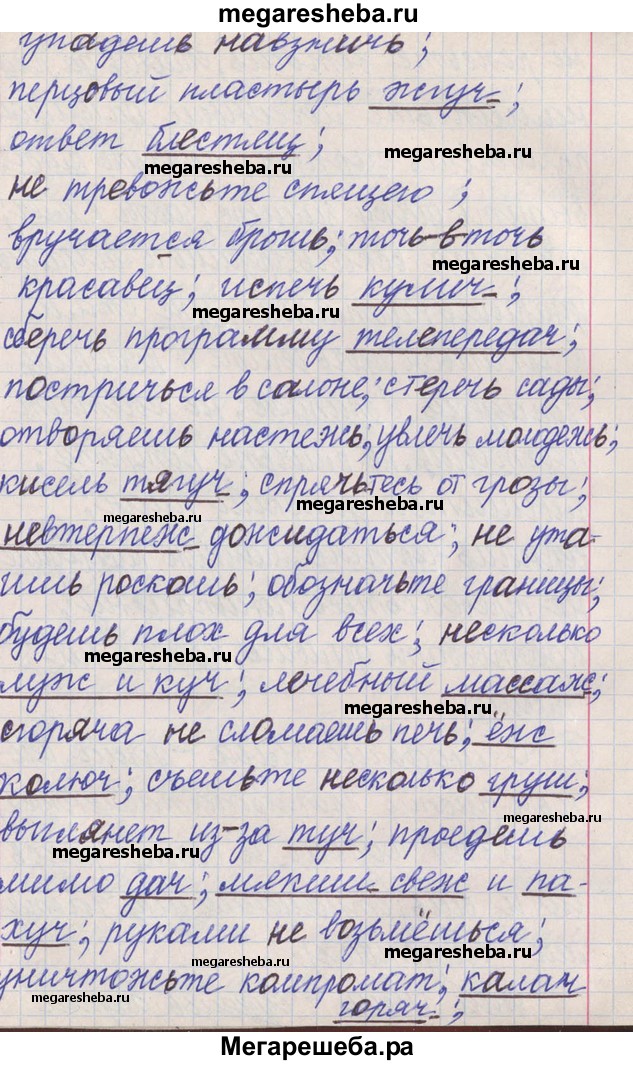 megaresheba.ru
упадешь навзничь;
перцовый пластырь жгуч;
ответ блестящ;
megaresheba.ru
megaresheba.ru
не тревожьте спящего;
вручается брошь; точь-в-точь
megaresheba.ru
красавец; испечь кулич;
megaresheba.ru
сберечь программу телепередач;
постричься в салоне; стеречь сады;
отворяешь настежь; увлечь молодежь;
кисель тягуч; спрячьтесь от грозы;
megaresheba.ru
megaresheba.ru
невтерпеж дожидаться; не ута-
ишь роскошь; обозначьте границы;
будешь плох для всех; несколько
megaresheba.ru
луж и куч; лечебный массаж;
megaresheba.ru
сгоряча не сломаешь печь; ёж
колюч; съешьте несколько груш;
выглянет из-за туч; проедешь
megaresheba.ru
мимо дач; мякиш свеж и па-
хуч; руками не возьмёшься;
megaresheba.ru
уничтожьте компромат; калач
megaresheba.ru
горяч;
megaresheba.ru
Мегарешеба.ра